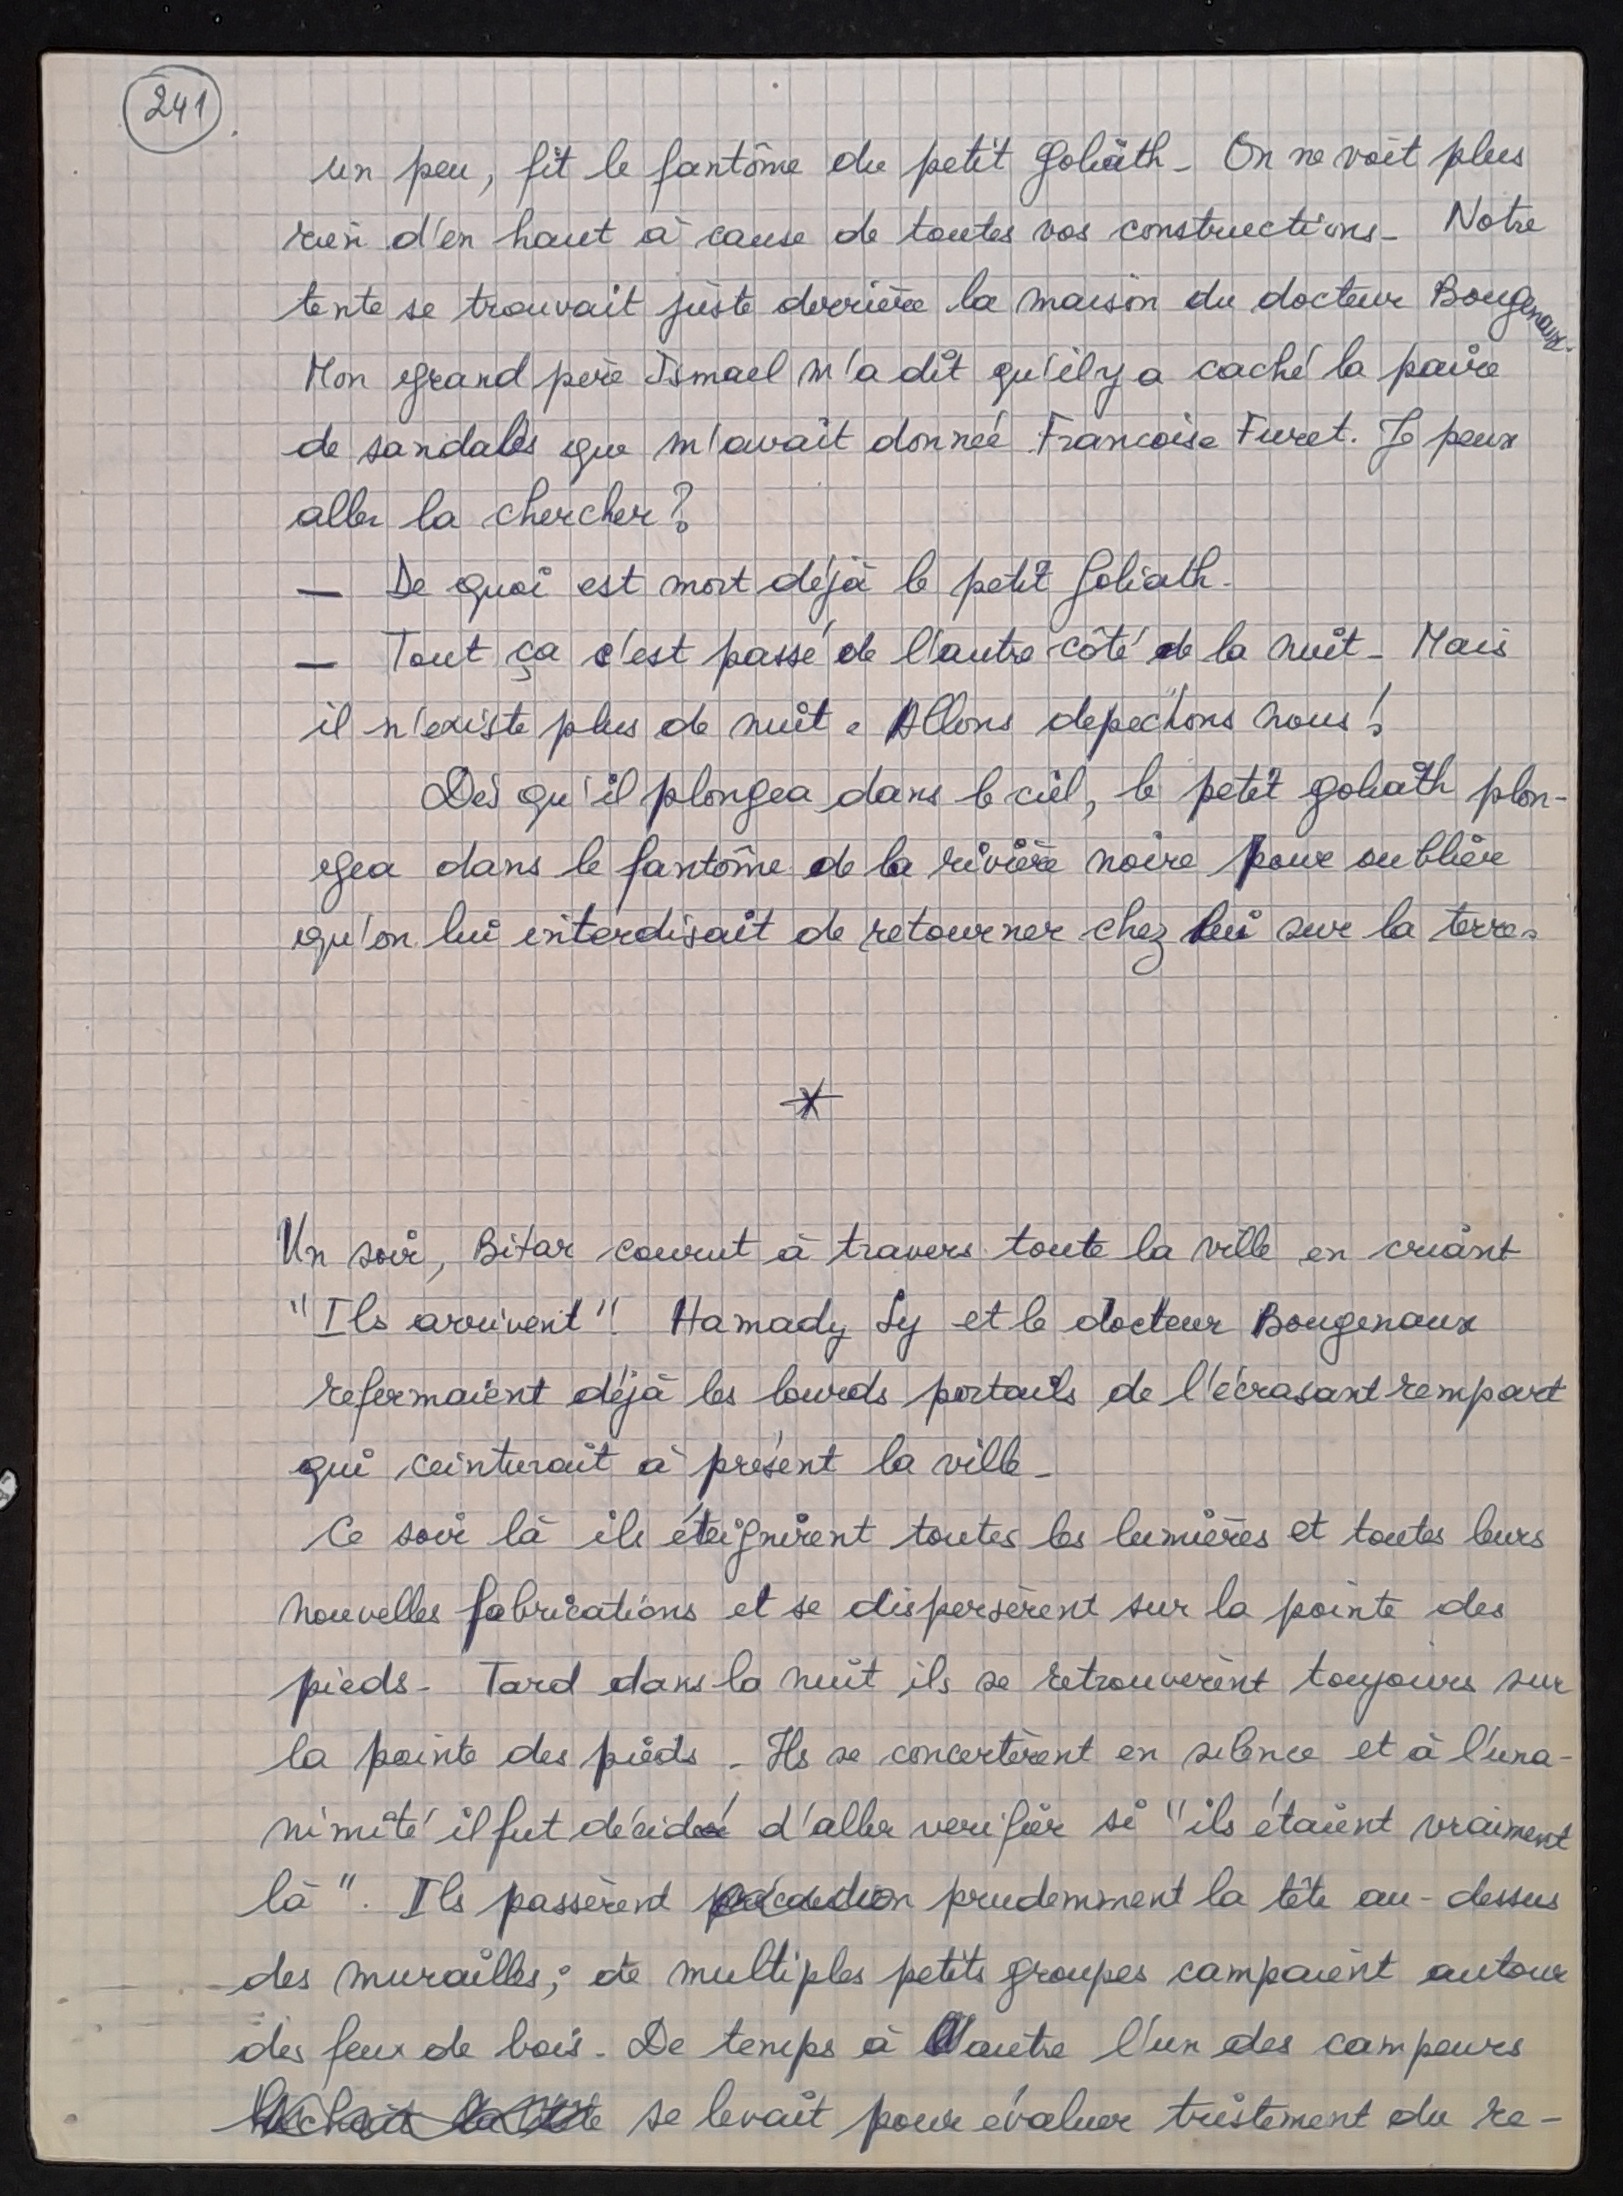 241
un peu, fit le fantôme du petit goliath. On ne voit plus
rien d'en haut à cause de toutes vos constructions. Notre
tente se trouvait juste derrière la maison du docteur Bougenaux.
Mon grand père Ismael m'a dit qu'il y a caché la paire
de sandales que m'avait donnée Francoise Furet. Je peux
aller la chercher?
— De quoi est mort déjà le petit Goliath.
— Tout ça c'est passé de l'autre côté de la nuit. Mais
il n'existe plus de nuit. Allons depechons nous!
Dès qu'il plongea dans le ciel, le petit goliath plon-
gea dans le fantôme de la rivière noire pour oublier
qu'on lui interdisait de retourner chez lui sur la terre.
*
Un soir, Bitar courut à travers toute la ville en criant
"Ils arrivent"! Hamady Ly et le docteur Bougenaux
refermaient déjà les lourds portails de l'écrasant rempart
qui ceinturait à présent la ville.
Ce soir là ils éteignirent toutes les lumières et toutes leurs
nouvelles fabrications et se dispersèrent sur la pointe des
pieds. Tard dans la nuit ils se retrouvèrent toujours sur
la pointe des pieds. Ils se concertèrent en silence et à l'una-
nimité il fut décidé d'aller verifier si "ils étaient vraiment
là". Ils passèrent prudemment la tête au-dessus
des murailles; de multiples petits groupes campaient autour
des feux de bois. De temps à autre l'un des campeurs
se levait pour évaluer tristement du re-